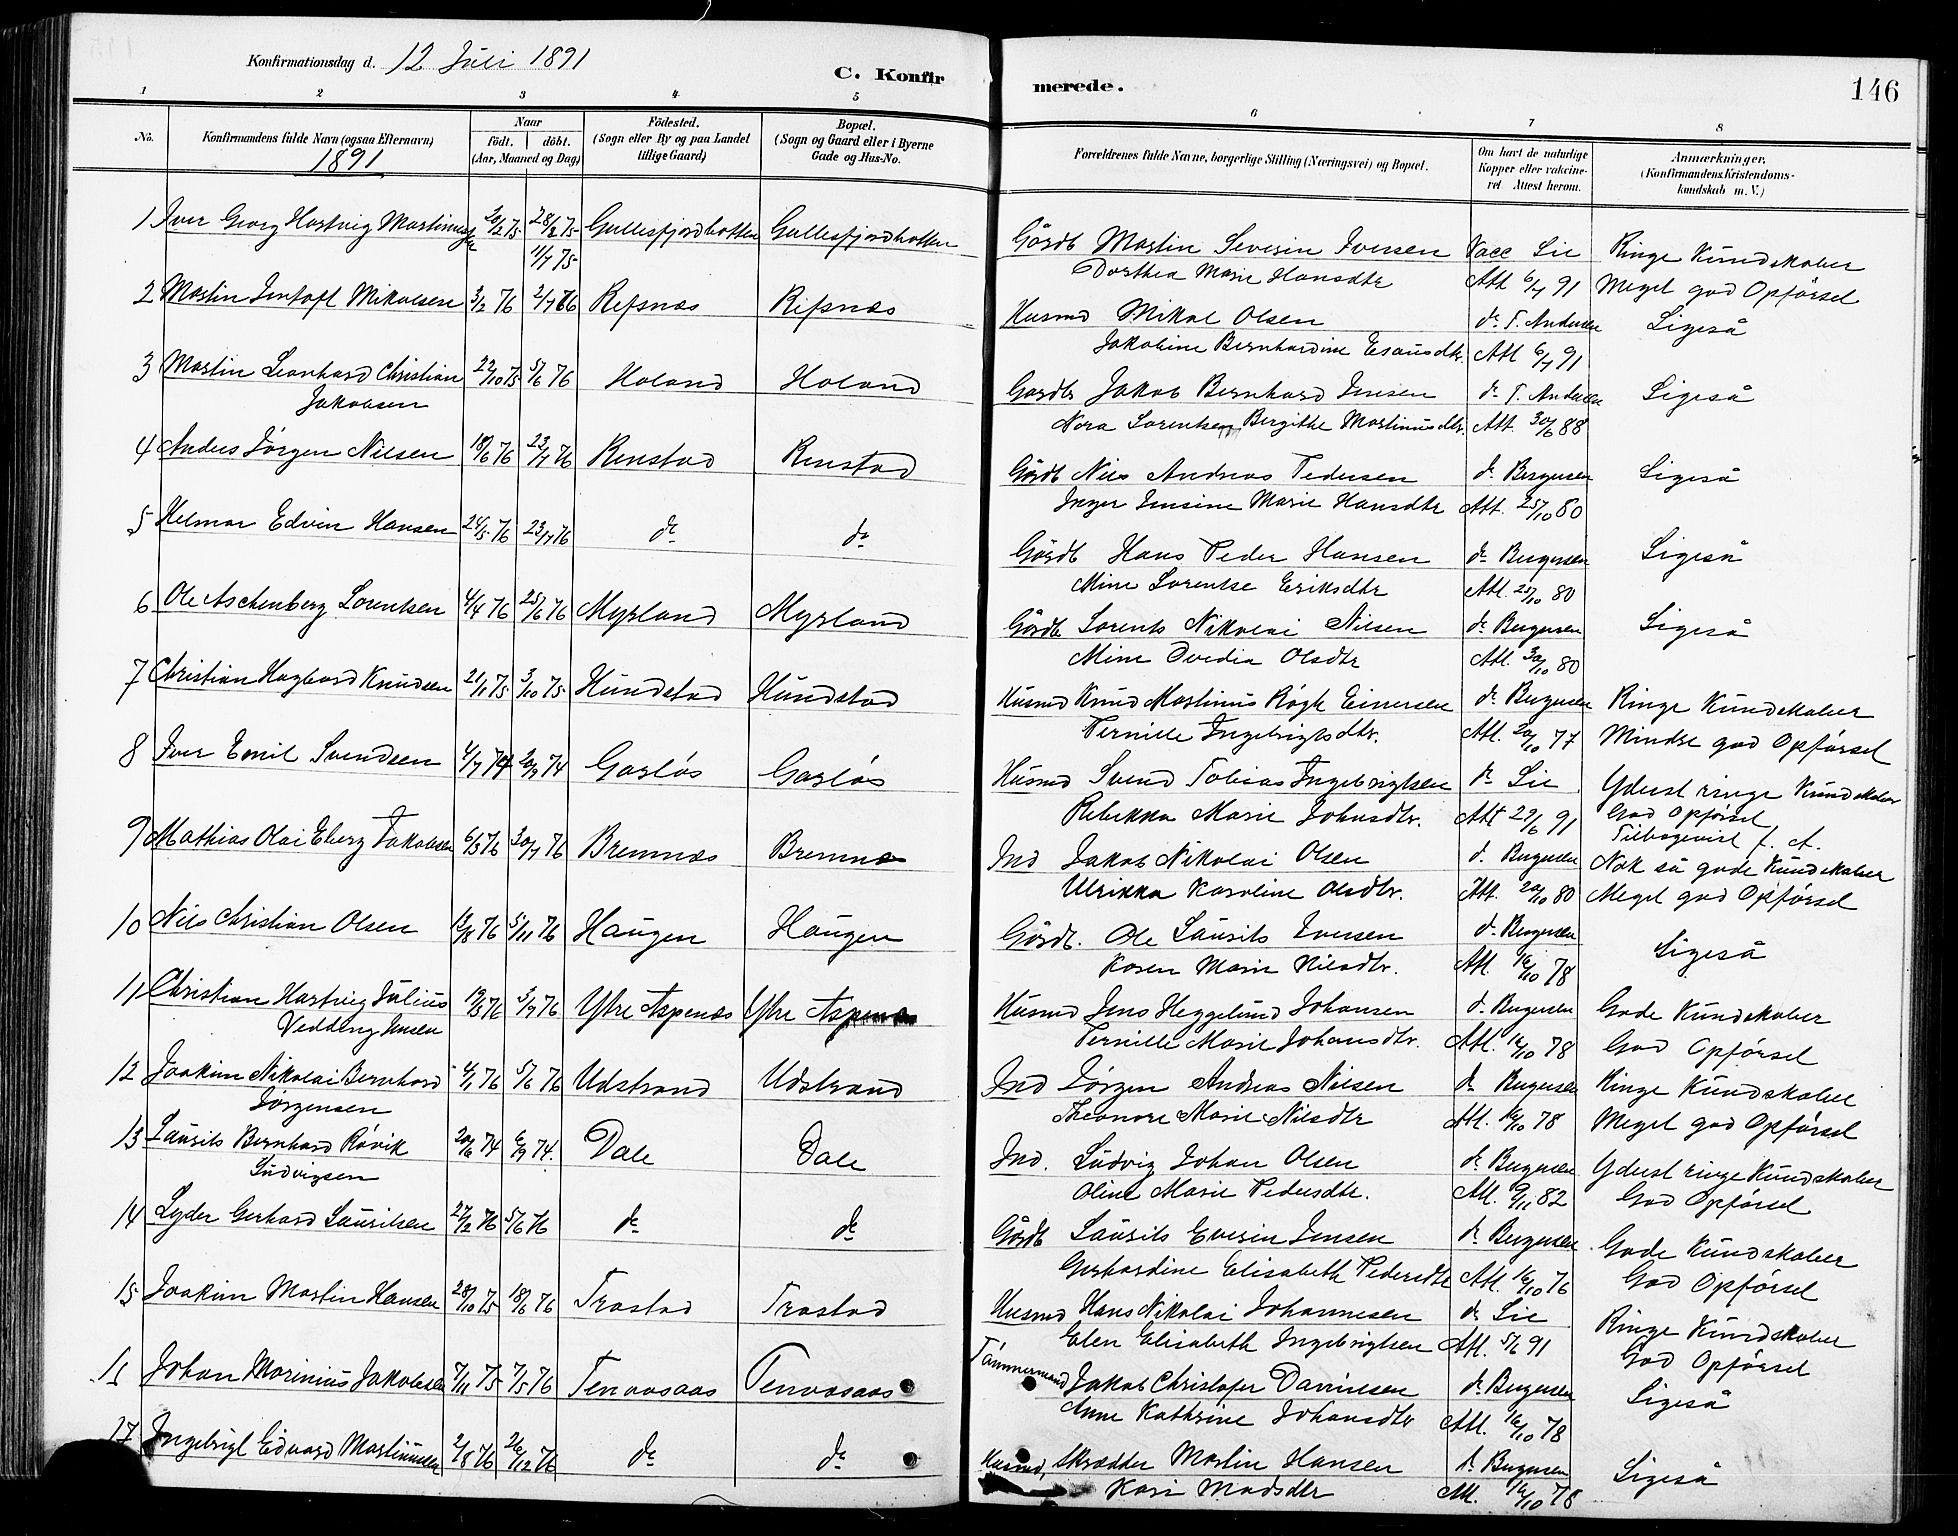 Konfirmationsdag d. 12 Juli 1891
C. Konfirmerede.
146
1 2 3 4 5 6 7 8
No.
Konfirmandens fulde Navn (ogsaa Efternavn)
1891
Naar
födt. döbt.
(Aar, Maaned og Dag)
Födested.
(Sogn eller By og paa Landet
tillige Gaard)
Bopæl.
(Sogn og Gaard eller i Byerne
Gade og Hus-No.
Forældrenes fulde Navne, borgerlige Stilling (Næringsvei) og Bopæl.
Om havt de naturlige
Kopper eller vakcine-
ret Attest herom.
Anmærkninger.
(Konfirmandens Kristendoms-
kundskab m. V.)
1 Iver Georg Hartvig Martinussen 20/2 75 28/2 75 Gullesfjordbotten Gullesfjordbotten Gårdb Martin Severin Iversen Vacc Lie Ringe Kundskaber
11/7 75 Dorthea Marie Hansdtr Att 6/7 91 Meget god Opförsel
2 Martin Jentoft Mikalsen 3/2 76 2/7 76 Refsnæs Refsnæs Husmd Mikal Olsen do T. Andersen Ligeså
Jakobine Bernhardine Esausdtr. Att 6/7 91
3 Martin Leonhard Christian 22/10 75 5/6 76 Holand Holand Gårdb Jakob Bernhard Jensen do T. Andersen Ligeså
Jakobsen Nora Lorentsen Bergithe Martinusdtr. Att. 30/6 88
4 Anders Jörgen Nilsen 18/6 76 23/7 76 Renstad Renstad Gårdb Nils Andreas Pedersen do Bergersen Ligeså
Inger Jensine Marie Hansdtr Att. 25/10 80
5 Helmar Edvin Hansen 24/5 76 23/7 76 do do Gårdb Hans Peder Hansen do Bergersen Ligeså
Mine Lorentse Eriksdtr Att. 25/10 80
6 Ole Aschenberg Lorentsen 4/4 76 25/6 76 Myrland Myrland Gårdb Lorents Nikolai Nilsen do Bergersen Ligeså
Mine Ovedia Olsdtr Att. 30/10 80
7 Christian Hagbard Knudsen 21/1 75 3/10 75 Hundstad Hundstad Husmd Knud Martinus Rögh Einersen do Bergersen Ringe Kundskaber
Pernille Ingebrigtsdtr. Att. 20/10 77 Mindre god Opförsel
8 Iver Emil Svendsen 4/7 74 20/9 74 Gaslös Gaslös Husmd Svend Tobias Ingebrigtsen do Lie Yderst ringe Kundskaber
Rebekka Marie Johnsdtr. Att 29/6 91 God Opförsel
Tilbagevist f. A.
9 Mathias Olai Eberg Jakobsen 6/5 76 30/7 76 Bremnæs Bremnæs Ind Jakob Nikolai Olsen do Bergersen Nok så gode Kundskaber
Ulrikka Karoline Olsdtr. Att. 20/10 80 Meget god Opförsel
10 Nils Christian Olsen 12/8 76 5/11 76 Haugen Haugen Gårdb. Ole Laurits Iversen do Bergersen Ligeså
Karen Marie Nilsdtr. Att. 16/10 78
11 Christian Hartvig Julius 19/3 76 3/9 76 Ytre Aspenæs Ytre Aspenæs Husmd Jens Heggelund Johansen do Bergersen Gode Kundskaber
Vedding Jensen Pernille Marie Johansdtr. Att. 16/10 78 God Opförsel
12 Joakim Nikolai Bernhard 4/1 76 5/6 76 Udstrand Udstrand Ind Jörgen Andreas Nilsen do Bergersen Ringe Kundskaber
Jörgensen Theonore Marie Nilsdtr Att. 16/10 78 Meget god Opförsel
13 Laurits Bernhard Rövik 20/6 74 6/9 74. Dale Dale Ind. Ludvig Johan Olsen do Bergersen Yderst ringe Kundskaber
Ludvigsen Oline Marie Pedersdtr. Att. 9/11 82 God Opförsel
14 Lyder Gerhard Lauritsen 27/2 76 5/6 76 do do Gårdb Laurits Everin Jensen do Bergersen Gode Kundskaber
Gerhardine Elisabeth Pedersdtr Att. 16/10 76 God Opförsel
15 Joakim Martin Hansen 28/10 75 18/6 76 Trastad Trastad Husmd Hans Nikolai Johannesen do Lie Ringe Kundskaber
Elen Elisabeth Ingebrigtsen Att. 5/6 91 God Opförsel
Johan Marinius Jakobsen 7/11 75 7/5 76 Tenvasaas Tenvasaas Tömmermand Jakob Christofer Danielsen do Bergersen Ligeså
Anne Kathrine Johansdtr Att. 16/10 78
17 Ingebrigt Edvard Martinussen 2/8 76 26/12 76 do do Husmd, Skrædder Martin Hansen do Bergersen Ligeså
Kari Madsdtr Att. 16/10 78